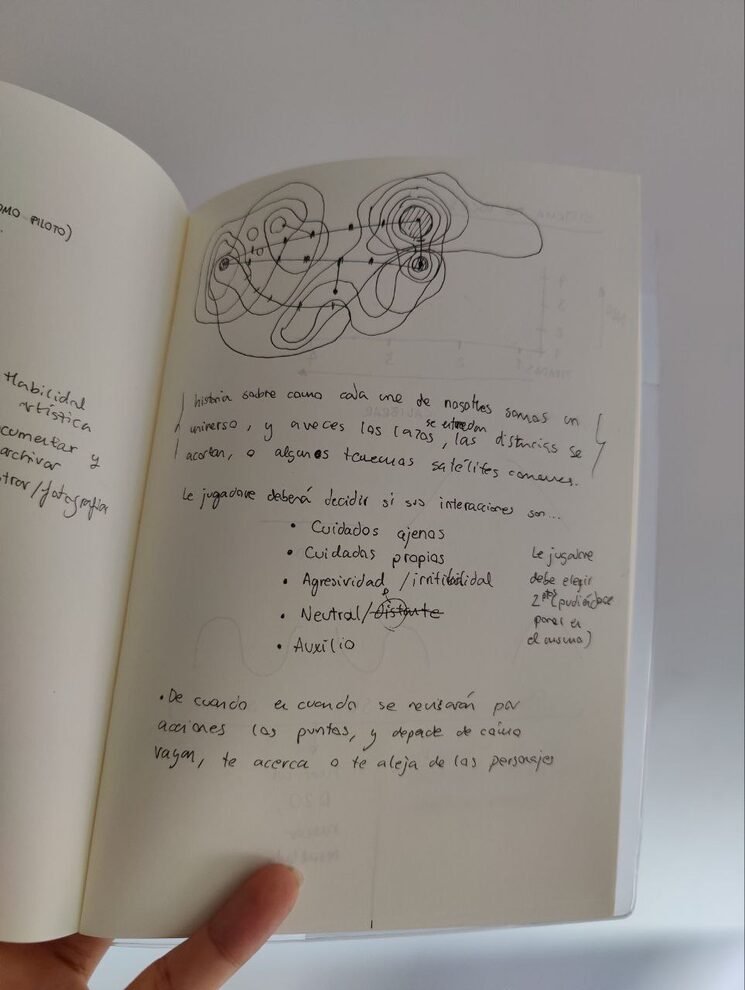 OMO PILOTO)
Habilidad
artística
cumentar y
archivar
strar/fotografiar
historia sobre como cada une de nosotres somos un
universo, y a veces los lazos se enredan, las distancias se
acortan, o algunes tenemos satélites comunes.
Le jugadore deberá decidir si sus interacciones son...
• Cuidados ajenos
• Cuidados propios
• Agresividad/irritibilidad
• Neutral/distante
• Auxilio
Le jugadore
debe elegir
2 pts (pudiéndose
poner en
el mismo)
• De cuando en cuando se revisarán por
acciones los puntos, y depende de cómo
vayan, te acerca o te aleja de los personajes